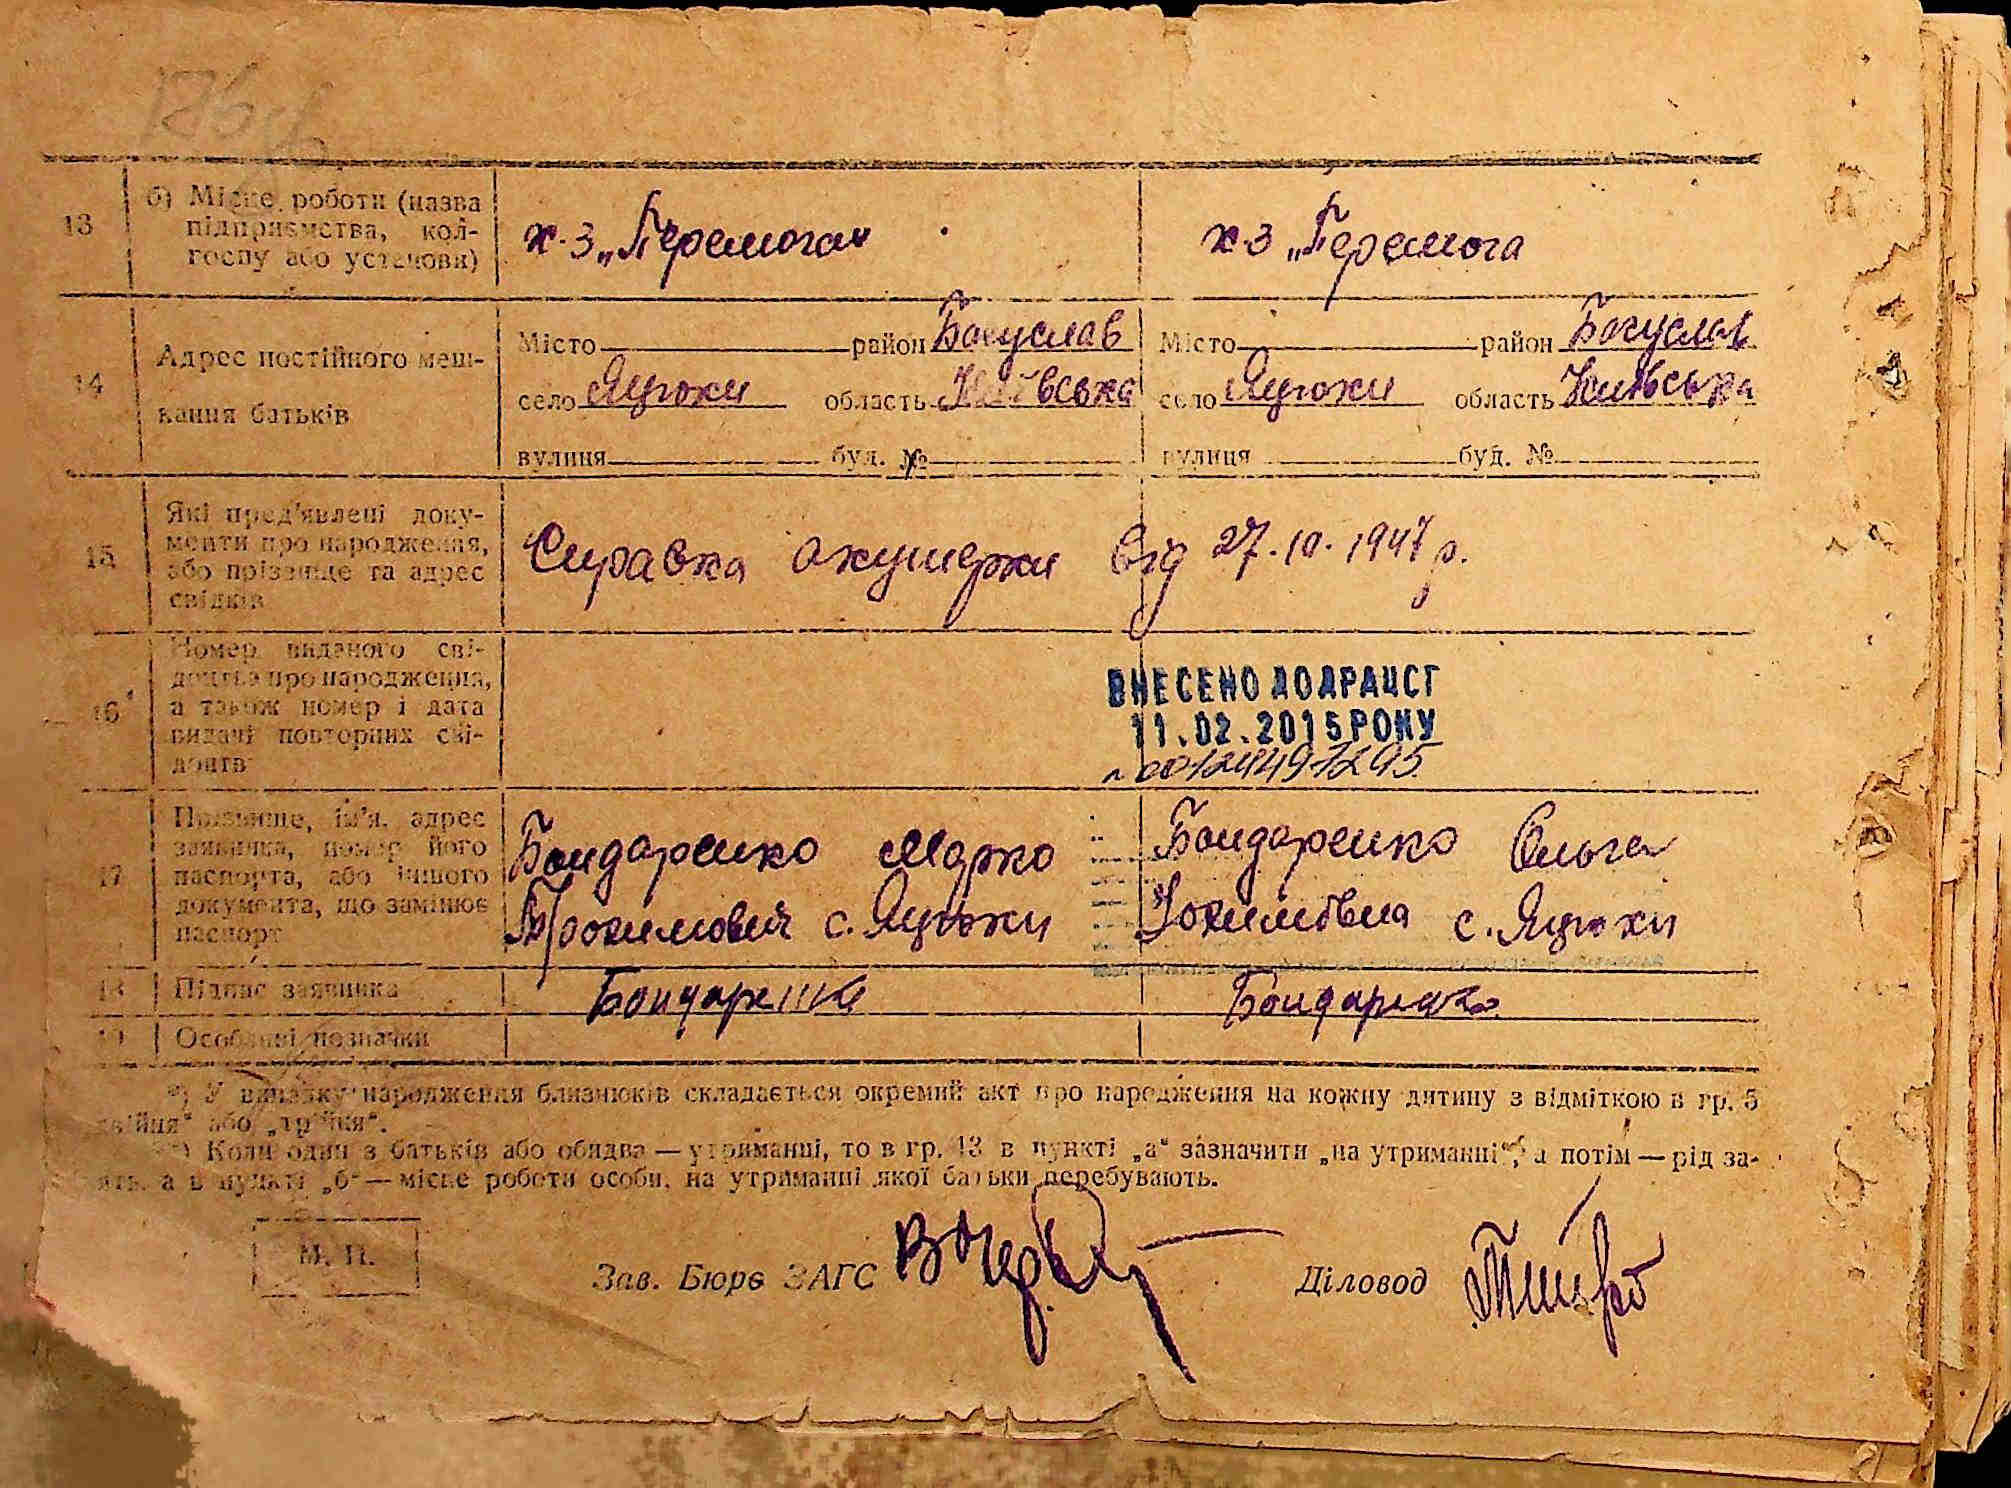 13
б) Місце роботи (назва
підприємства, кол-
госпу або установи)
к-з „Перемога"
к-з „Перемога
14
Адрес постійного меш-
кання батьків
Місто район Богуслав
село Яцюки область Київська
вулиця буд. №
Місто район Богуслав
село Яцюки область Київська
вулиця буд. №
15
Які пред'явлені доку-
менти про народження,
або прізвище та адрес
свідків
Справка акушерки від 27.10.1947 р.
16
Номер виданого сві-
доцтва про народження,
а також номер і дата
видачі повторних сві-
доцтв
ВНЕСЕНО ДО ДРАЦСГ
11.02.2015 РОКУ
17
Прізвище, ім'я, адрес
заявника, номер його
паспорта, або іншого
документа, що замінює
паспорт
Бондаренко Марко
Трохимович с. Яцюки
Бондаренко Ольга
Юхимівна с. Яцюки
18
Підпис заявника
Бондаренко
Бондаренко
19
Особливі позначки
*) У випадку народження близнюків складається окремий акт про народження на кожну дитину з відміткою в гр. 5
„двійня" або „трійня".
Коли один з батьків або обидва — утриманці, то в гр. 13 в пункті „а" зазначити „на утриманні", а потім — рід за-
нять, а в пункті „б" — місце роботи особи, на утриманні якої батьки перебувають.
М. П.
Зав. Бюро ЗАГС
Діловод